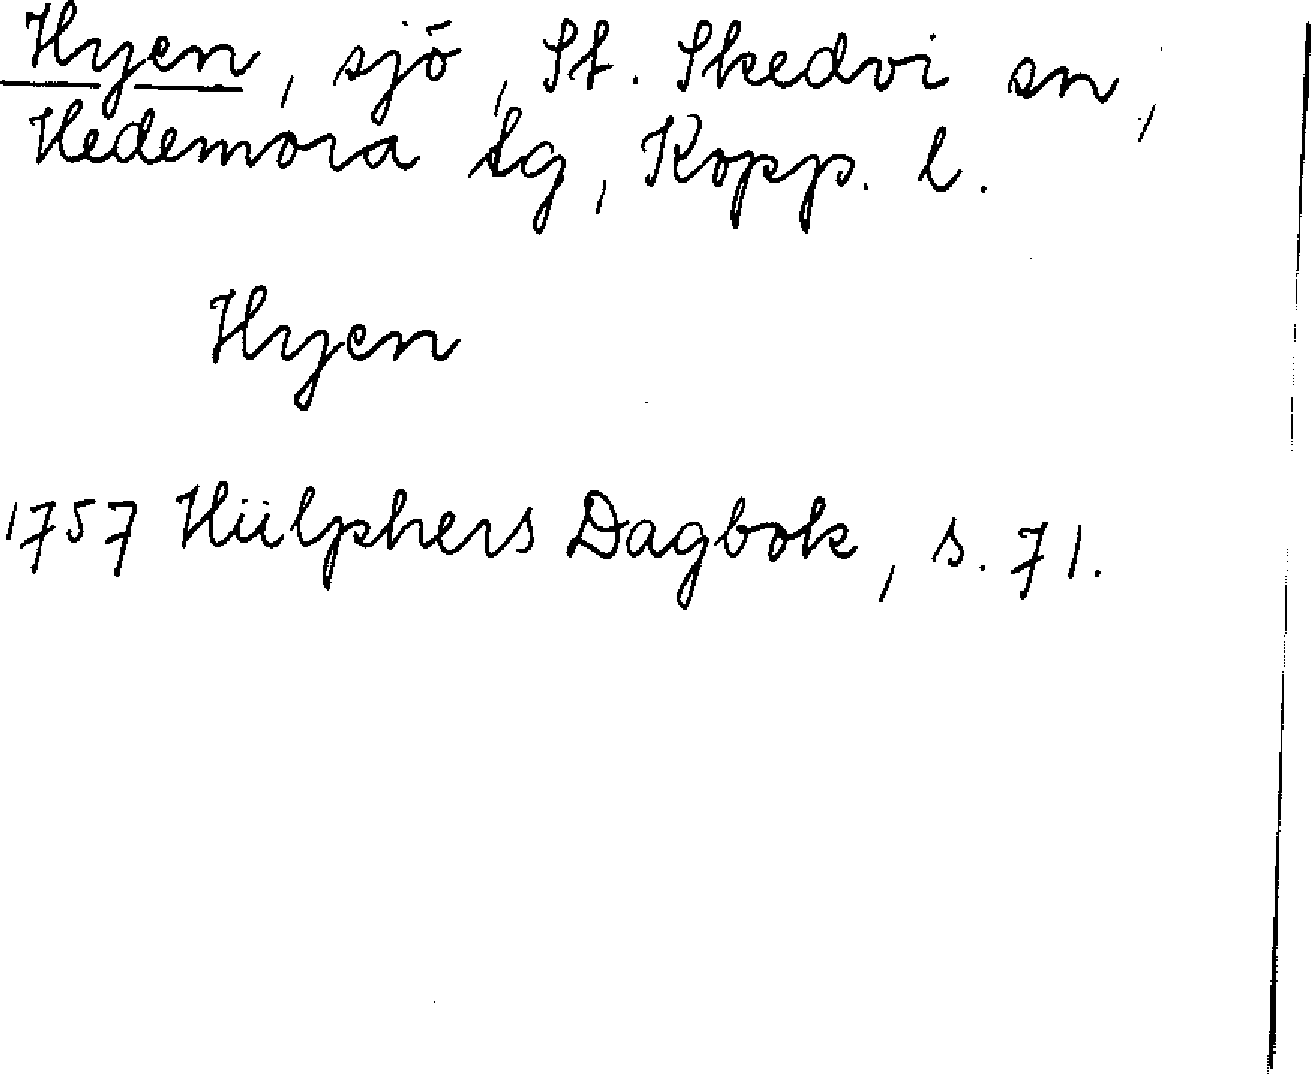 Hyen, sjö, St. Skedvi sn,
Hedemora tg, Kopp. l.
Hyen
1757 Hülphers Dagbok, s. 71.